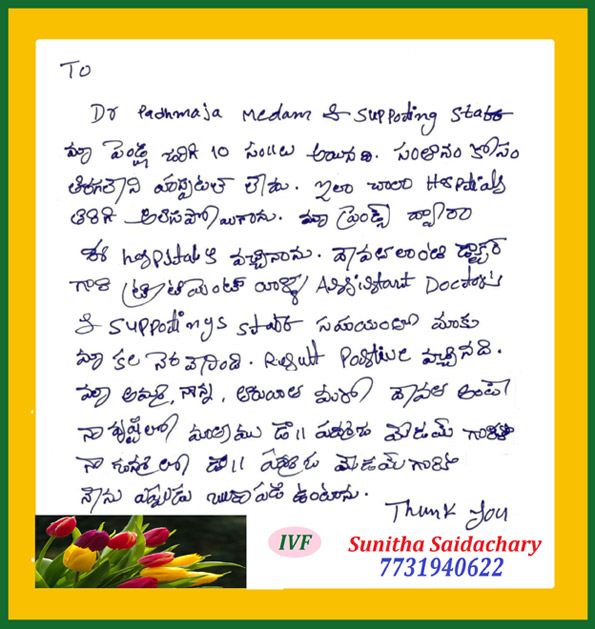 To
Dr Padhmaja Medam & Suppoding Staff
మా పెండ్లి జరిగి 10 సం॥లు అయినది. సంతానం కోసం
తిరగలేని హాస్పటల్ లేదు. ఇలా చాలా Hospitals
తిరిగి అలిసిపోయినాను. మా ఫ్రెండ్స్ ద్వారా
ఈ hospitalకి వచ్చినాను. దేవతలాంటి డాక్టర్
గారి ట్రీట్‌మెంట్ Assisistant Doctors
& Suppodinys staff సహాయంతో మాకు
మా కల నెరవేరింది. Result Positive వచ్చినది.
మా అమ్మ, నాన్న, దేవత అంటే
నా దృష్టిలో డా॥ మేడమ్ గారికి
నా లో డా॥ మేడమ్ గారికి
నేను ఎప్పుడు ఋణపడి ఉంటాను.
Thank You
IVF
Sunitha Saidachary
7731940622